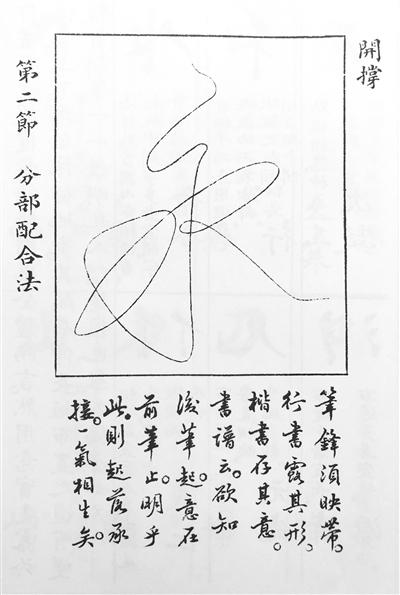 開撐
永
第二節 分部配合法
筆鋒須映帶。
行書露其形。
楷書存其意。
書譜云。欲知
後筆起。意在
前筆止。明乎
此。則起落承
接。一氣相生矣。